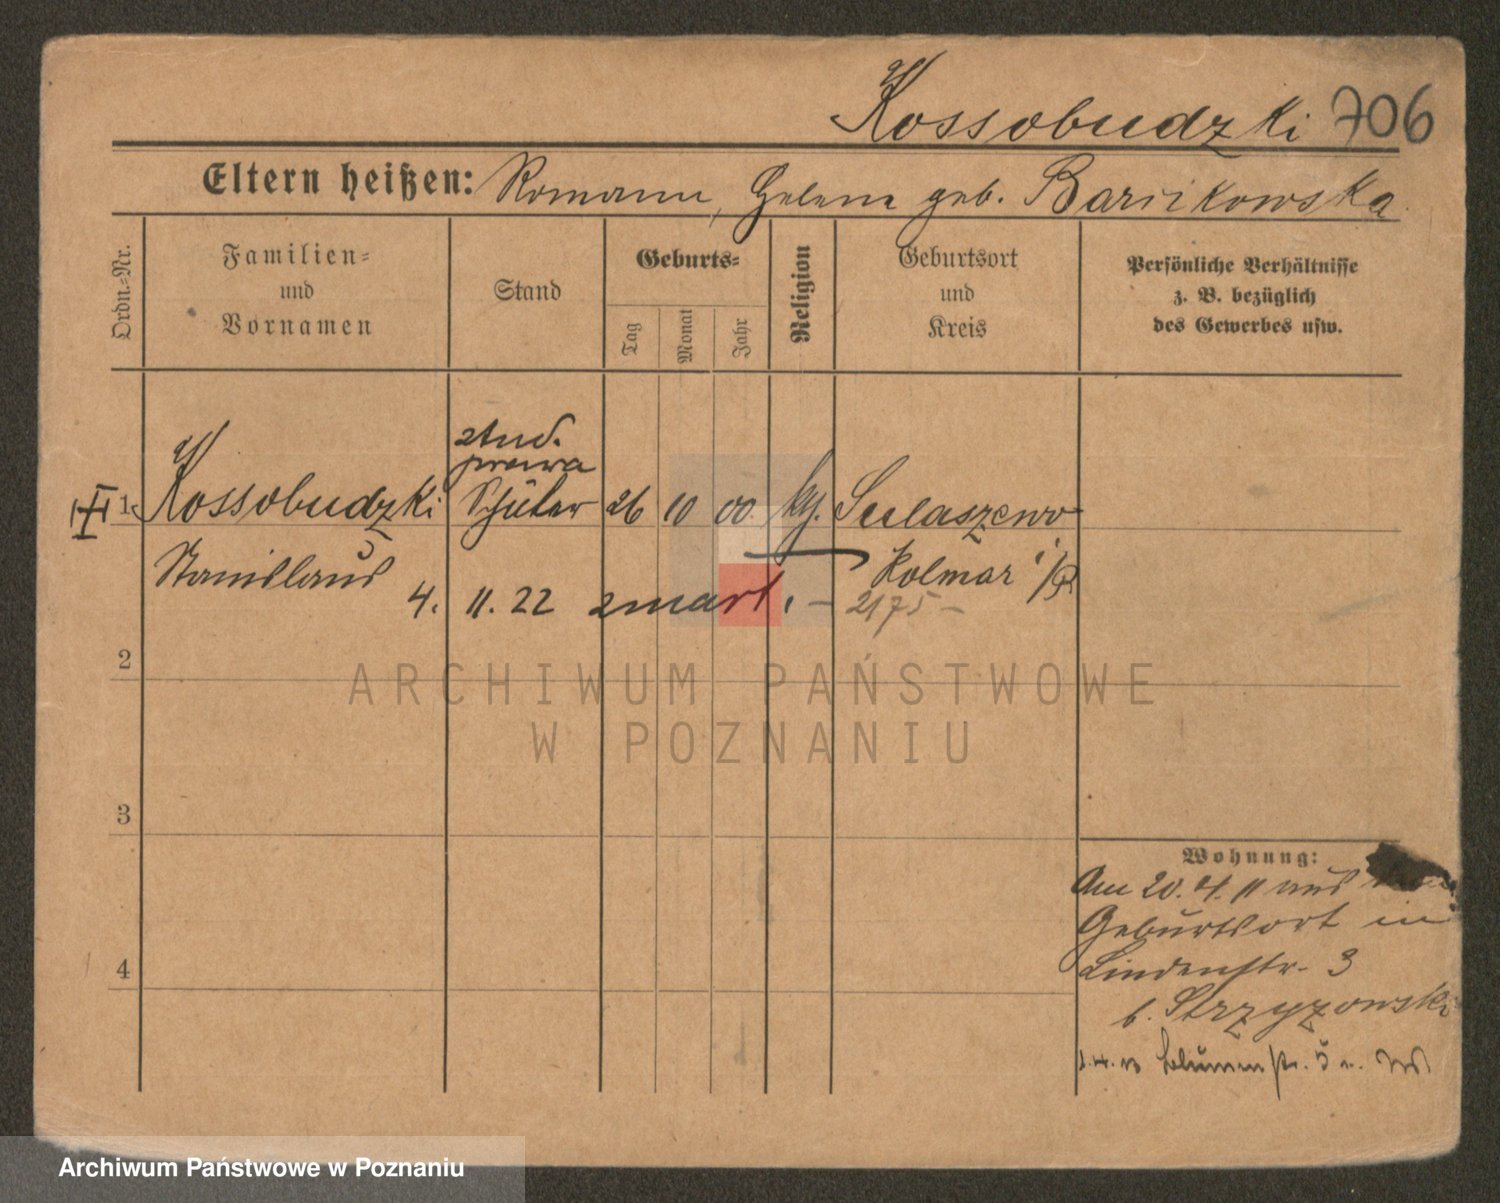 Kossobudzki 706
Eltern heißen: Romann, Helene geb. Barvikowska
Ordn.-Nr.
Familien-
und
Vornamen
Stand
Geburts-
Tag
Monat
Jahr
Religion
Geburtsort
und
Kreis
Persönliche Verhältnisse
z. B. bezüglich
des Gewerbes usw.
stud.
prawa
1. Kossobudzki Schüler 26 10 00 kth. Sulaszewo
Stanislaus Kolmar i/P
4. 11. 22 zmarł. - 2175 -
2
ARCHIWUM PAŃSTWOWE
W POZNANIU
3
Wohnung:
Am 20. 4. 11 aus
Geburtsort in
4
Lindenstr. 3
b. Strzyzowski
1.4.13 Blumenstr. 5
Archiwum Państwowe w Poznaniu